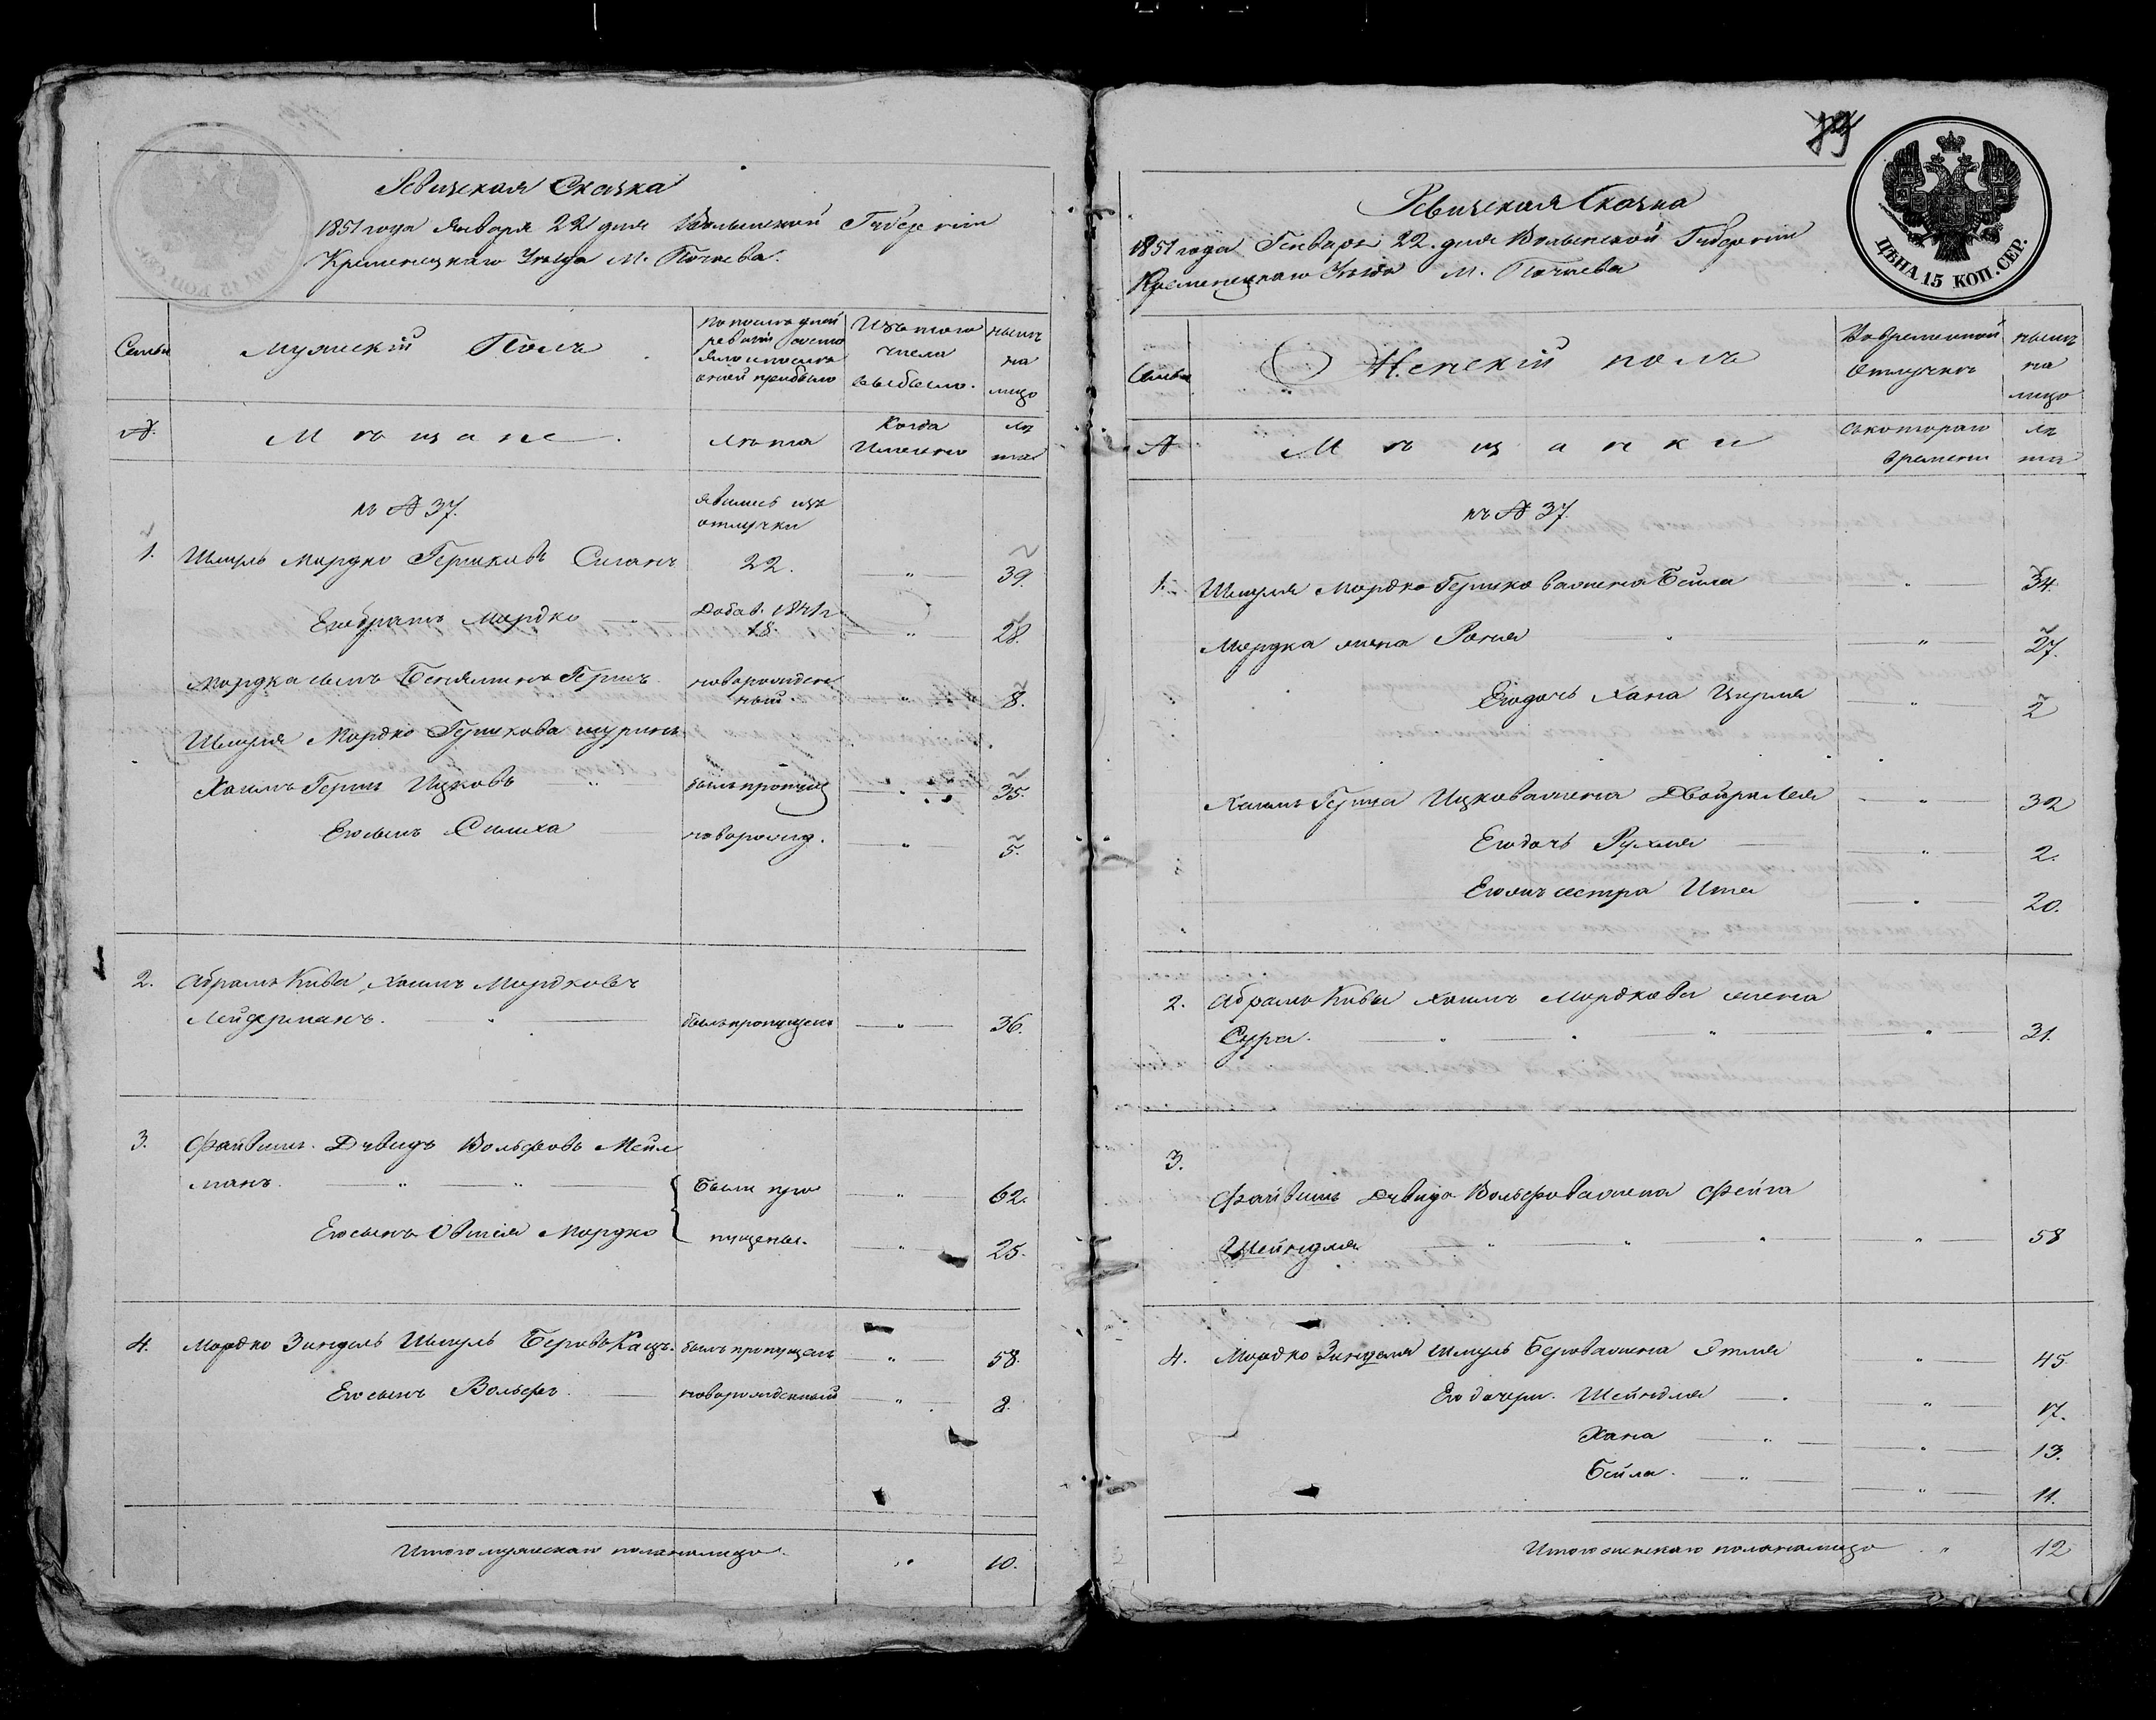 Ревизская Сказка
1851 года Января 22 дня Волынской Губернии
Кременецкаго Уезда М. Почаева.
Семьи
Мужескій Полъ
По последней ревизіи состояло и после оной прибыло
Изъ того числа выбыло.
Ныне на лицо
№.
Мещане
Лета
Когда Именно
Лета
къ № 37.
явились изъ отлучки
1. Шмуль Мордко Гершковъ Сиганъ 22. " 39.
Его братъ Мордко Добав. 1841 г. 18. " 28.
Мордка сынъ Беняминъ Гершъ новорожденный. " 8.
Шмуля Мордко Гершкова шуринъ
Хаимъ Гершъ Ицковъ " былъ пропущ " 35
Его сынъ Симха новорожд. " 5.
2. Абрамъ Кива Хаимъ Мордковъ
Лейдерманъ. " былъ пропущенъ " 36.
3. Файвишъ Дувидъ Вольфовъ Мейл
манъ. " " Были про " 62.
Его сынъ Овшія Мордко пущены. " 25.
4. Мордко Зиндель Шмуль Беровъ Кацъ. былъ пропущенъ " 58.
Его сынъ Вольфъ. новорожденный " 8.
Итого мужескаго пола налицо. " 10.
Ревизская Сказка
1851 года Генваря 22. дня Волынской Губерніи
Кременецкаго Уезда М. Почаева
ЦѢНА 15 КОП. СЕР.
Семьи
Женскій полъ
Во временной отлучке
ныне на лицо
№
Мещанки
Съ котораго времени
Лета
къ № 37.
1. Шмуля Мордко Гершкова жена Бейла " 34.
Мордка жена Рания " " 27.
Его дочь Хана Цирля " 2
Хаимъ Герша Ицкова жена Двойра Лея " 32
Его дочь Рухля " 2.
Его жъ сестра Ита " 20.
2. Абрамъ Кивы Хаимъ Мордкова жена
Сура. " " " " 31.
3.
Файвишъ Дувида Вольфова жена Фейга
Шейндля " " " " 58
4. Мордко Зинделя Шмуль Берова жена Этля " 45.
Его дочери. Шейндля " 17.
Хана " " 13.
Бейла. " " 11.
Итого женскаго пола налицо " 12